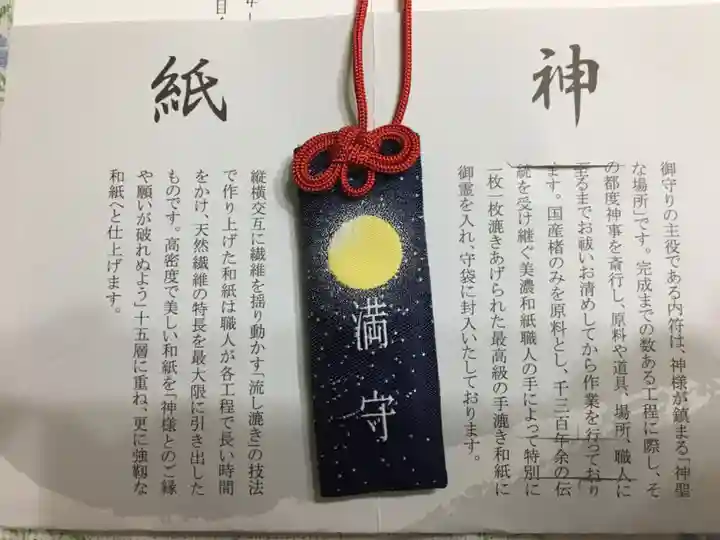 神
御守りの主役である内符は、神様が鎮まる『神聖
な場所』です。完成までの数ある工程に際し、そ
の都度神事を斎行し、原料や道具、場所、職人に
至るまでお祓いお清めしてから作業を行っており
ます。国産楮のみを原料とし、千三百年余の伝
統を受け継ぐ美濃和紙職人の手によって特別に
一枚一枚漉きあげられた最高級の手漉き和紙に
御霊を入れ、守袋に封入いたしております。
満守
紙
縦横交互に繊維を揺り動かす「流し漉き」の技法
で作り上げた和紙は職人が各工程で長い時間
をかけ、天然繊維の特長を最大限に引き出した
ものです。高密度で美しい和紙を「神様とのご縁
や願いが破れぬよう」十五層に重ね、更に強靱な
和紙へと仕上げます。